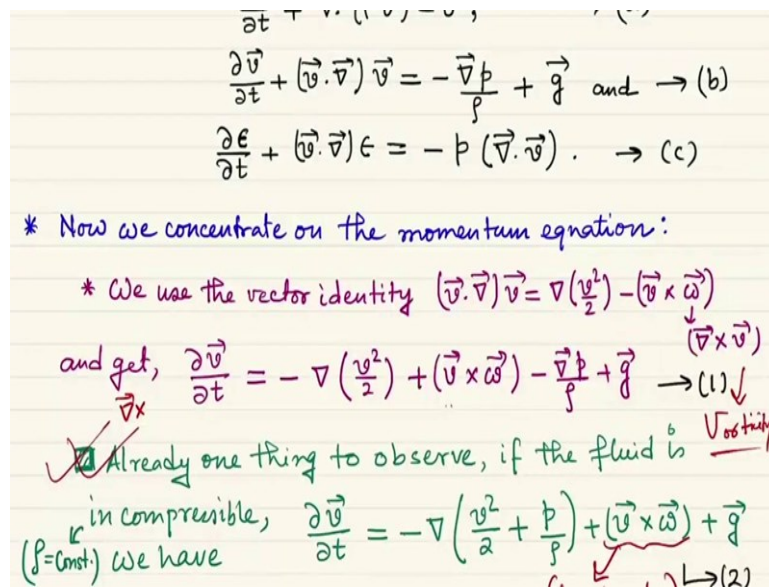 ∂v⃗/∂t + (v⃗.∇⃗) v⃗ = - ∇⃗p/ρ + g⃗ and → (b)
∂ϵ/∂t + (v⃗.∇⃗)ϵ = - p (∇⃗.v⃗) . → (c)
* Now we concentrate on the momentum equation:
* We use the vector identity (v⃗.∇⃗) v⃗ = ∇(v²/2) - (v⃗ × ω⃗)
↓
(∇⃗×v⃗)
and get, ∂v⃗/∂t = - ∇(v²/2) + (v⃗ × ω⃗) - ∇⃗p/ρ + g⃗ → (1) ↓
∇⃗× Vorticity
Already one thing to observe, if the fluid is
incompressible, ∂v⃗/∂t = -∇(v²/2 + p/ρ) + (v⃗ × ω⃗) + g⃗
(ρ=Const.) we have ↳(2)